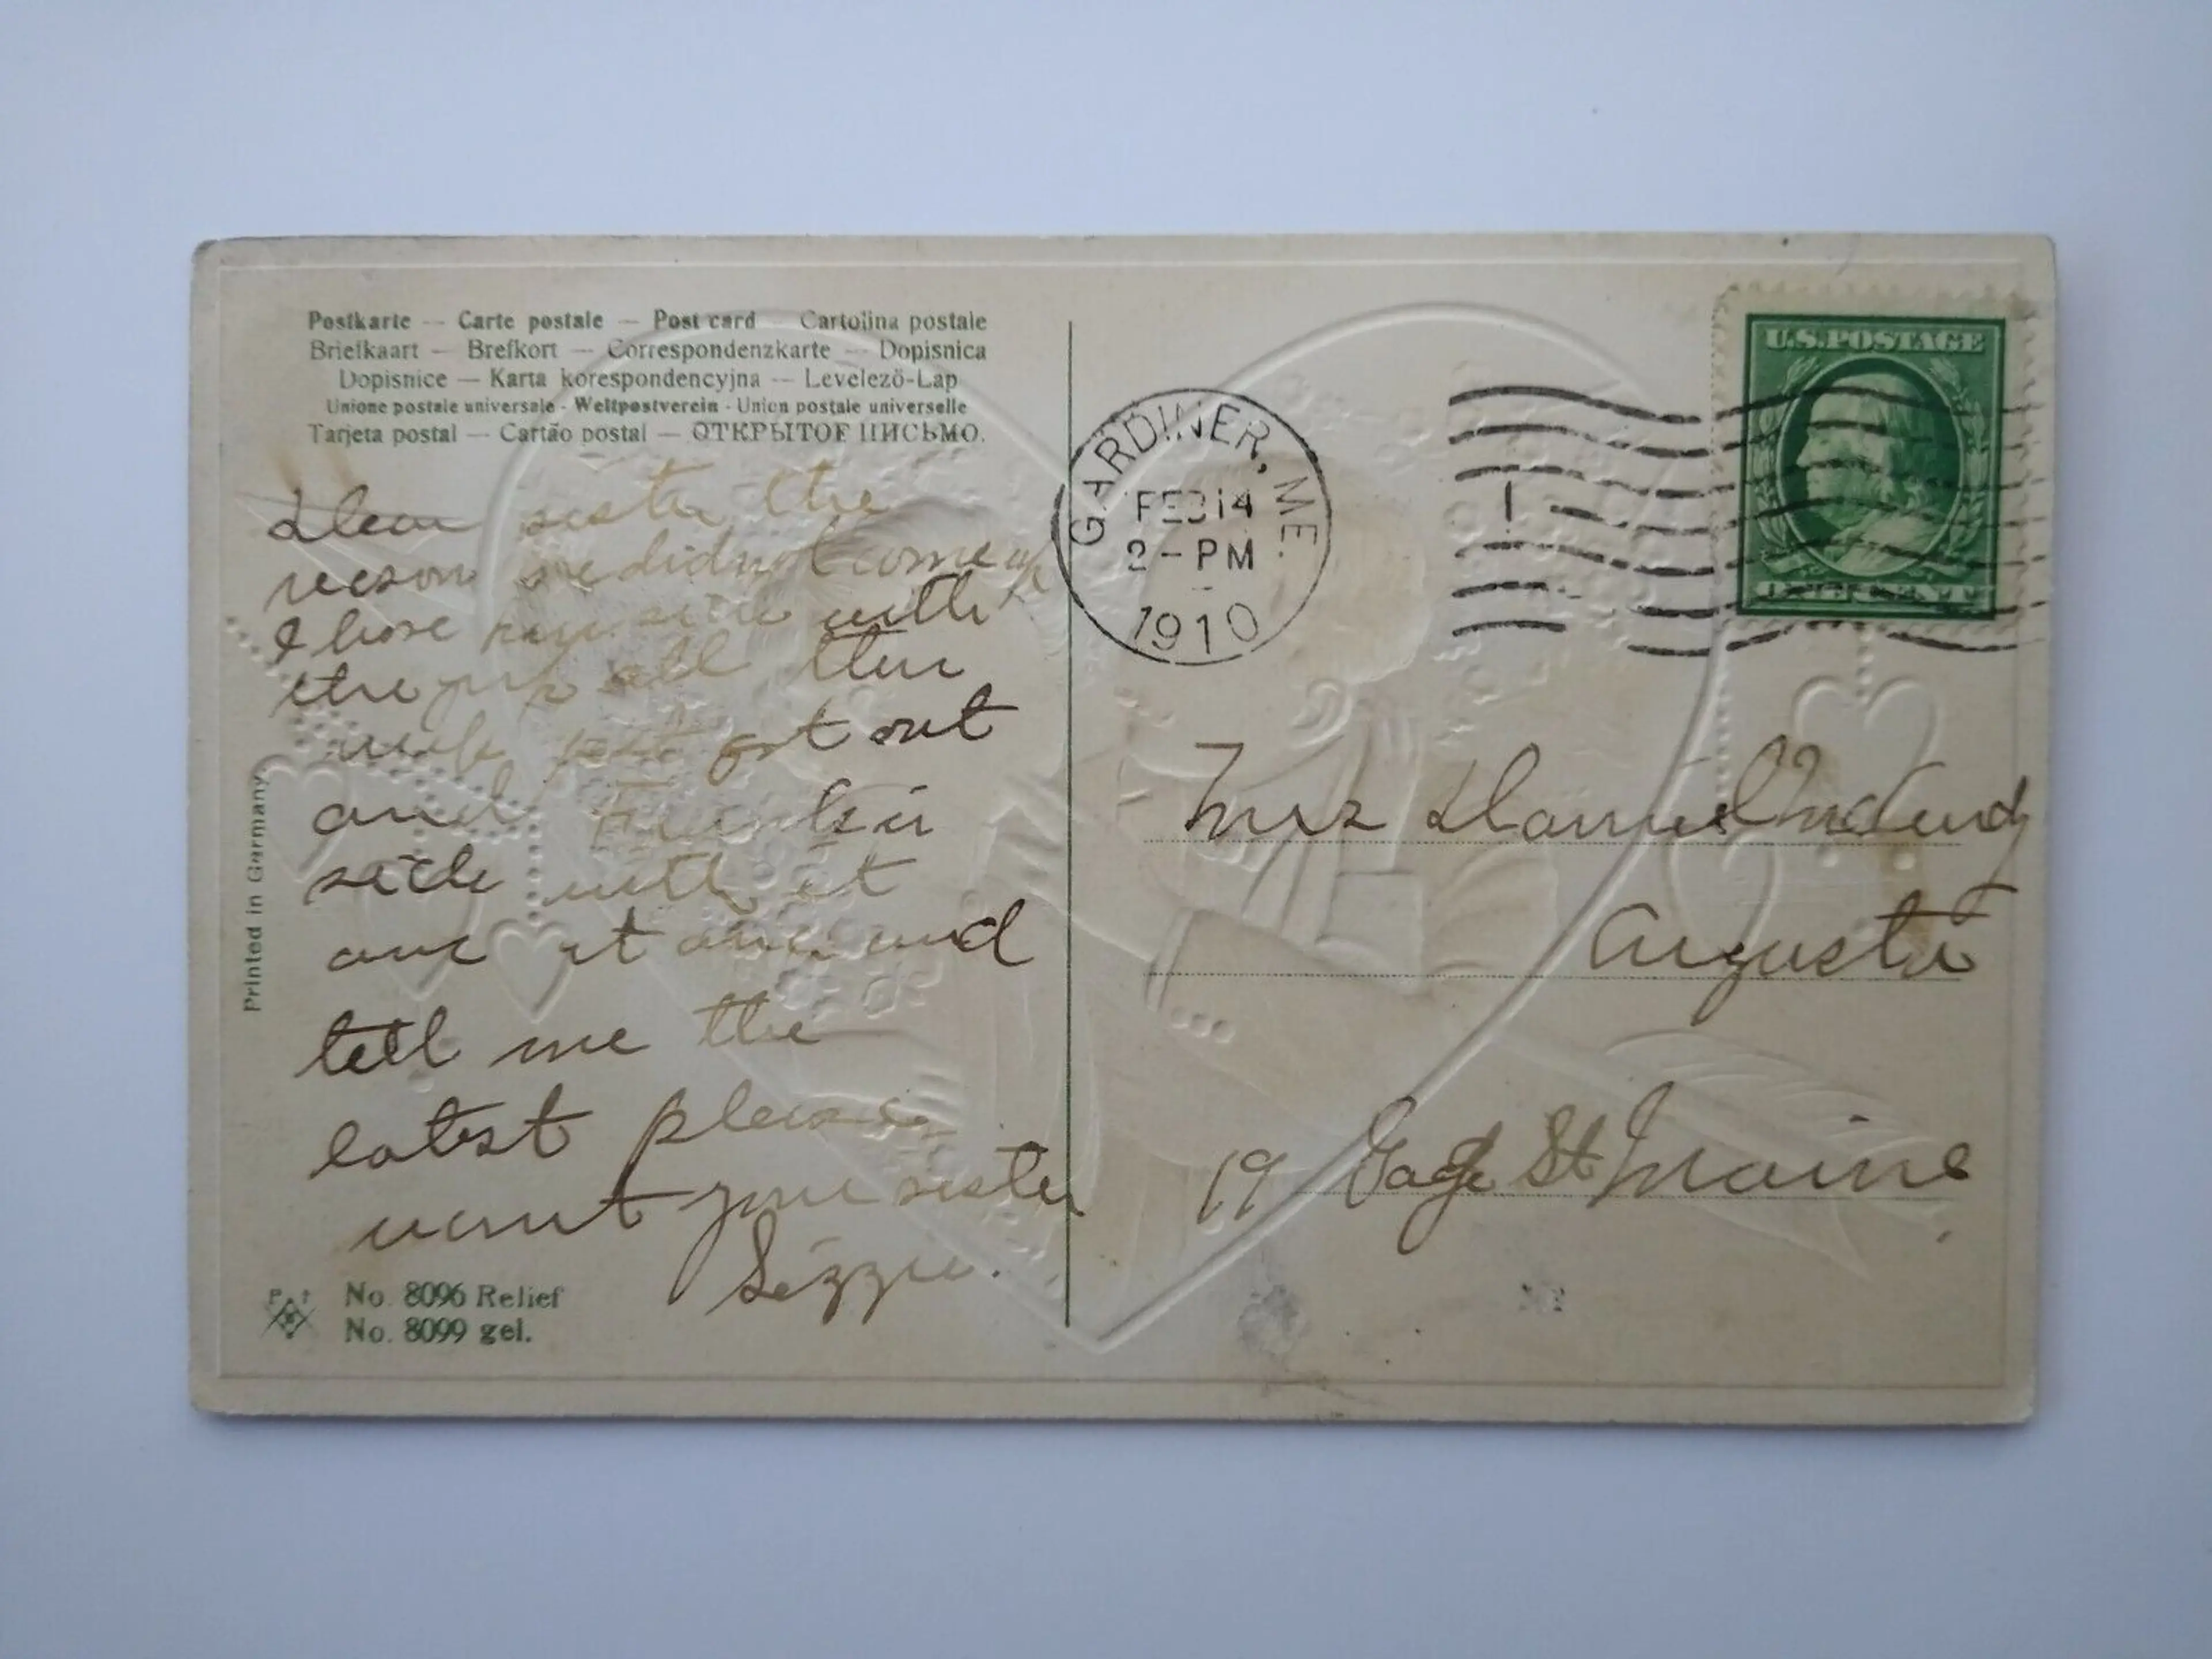 Postkarte — Carte postale — Post card — Cartolina postale
Briefkaart — Brefkort — Correspondenzkarte — Dopisnica
Dopisnice — Karta korespondencyjna — Levelező-Lap
Unione postale universale - Weltpostverein - Union postale universelle
Tarjeta postal — Cartão postal — ОТКРЫТОЕ ПИСЬМО.
Dear sister the
reason we did not come up
I have ben sick with
the grip all this
week just got out
and
sick with it
one at and
tell me the
latest please
want your sister
Lizzie.
Printed in Germany
No. 8096 Relief
No. 8099 gel.
GARDINER, ME.
FEB 14
2-PM
1910
1
U.S. POSTAGE
1 ONE CENT 1
Mrs Daniel
Augusta
19 Gage St Maine